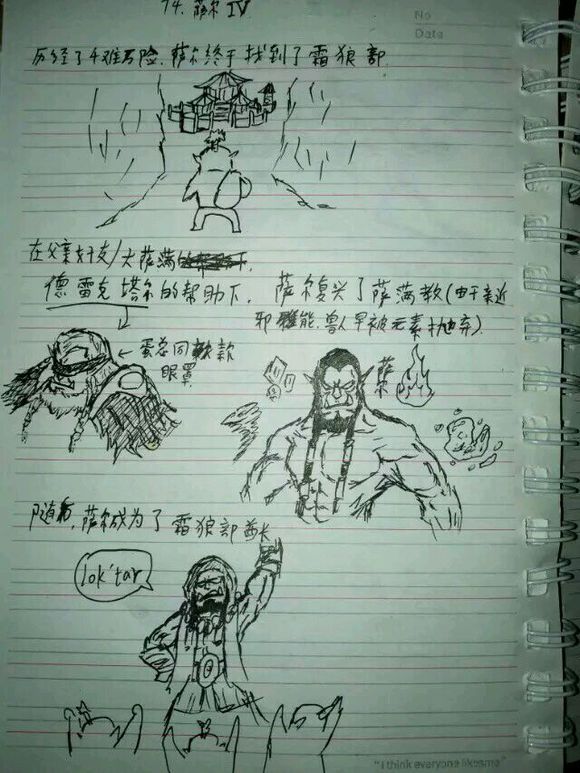 74. 萨尔 IV
No
Date
历经了千难万险,萨尔终于找到了霜狼部.
在父亲好友/大萨满
德雷克塔尔的帮助下,
萨尔复兴了萨满教(由于亲近
邪能,兽人早被元素抛弃).
←蛋总同款
眼罩
萨尔
随后,萨尔成为了霜狼部酋长
lok'tar
"I think everyone likesme"